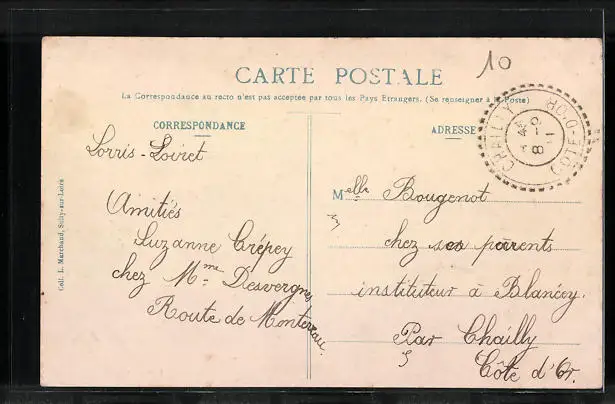 10
CARTE POSTALE
La Correspondance au recto n'est pas acceptée par tous les Pays Etrangers. (Se renseigner à la Poste)
CORRESPONDANCE
Lorris-Loiret
Amitiés
Suzanne Crépey
chez Mme Desvergnes
Route de Montereau.
Coll. L. Marchand, Sully-sur-Loire
ADRESSE
CHAILLY
COTE-D'OR
Melle Bougenot
chez ses parents
instituteur à Blancey.
Par Chailly
Côte d'Or.